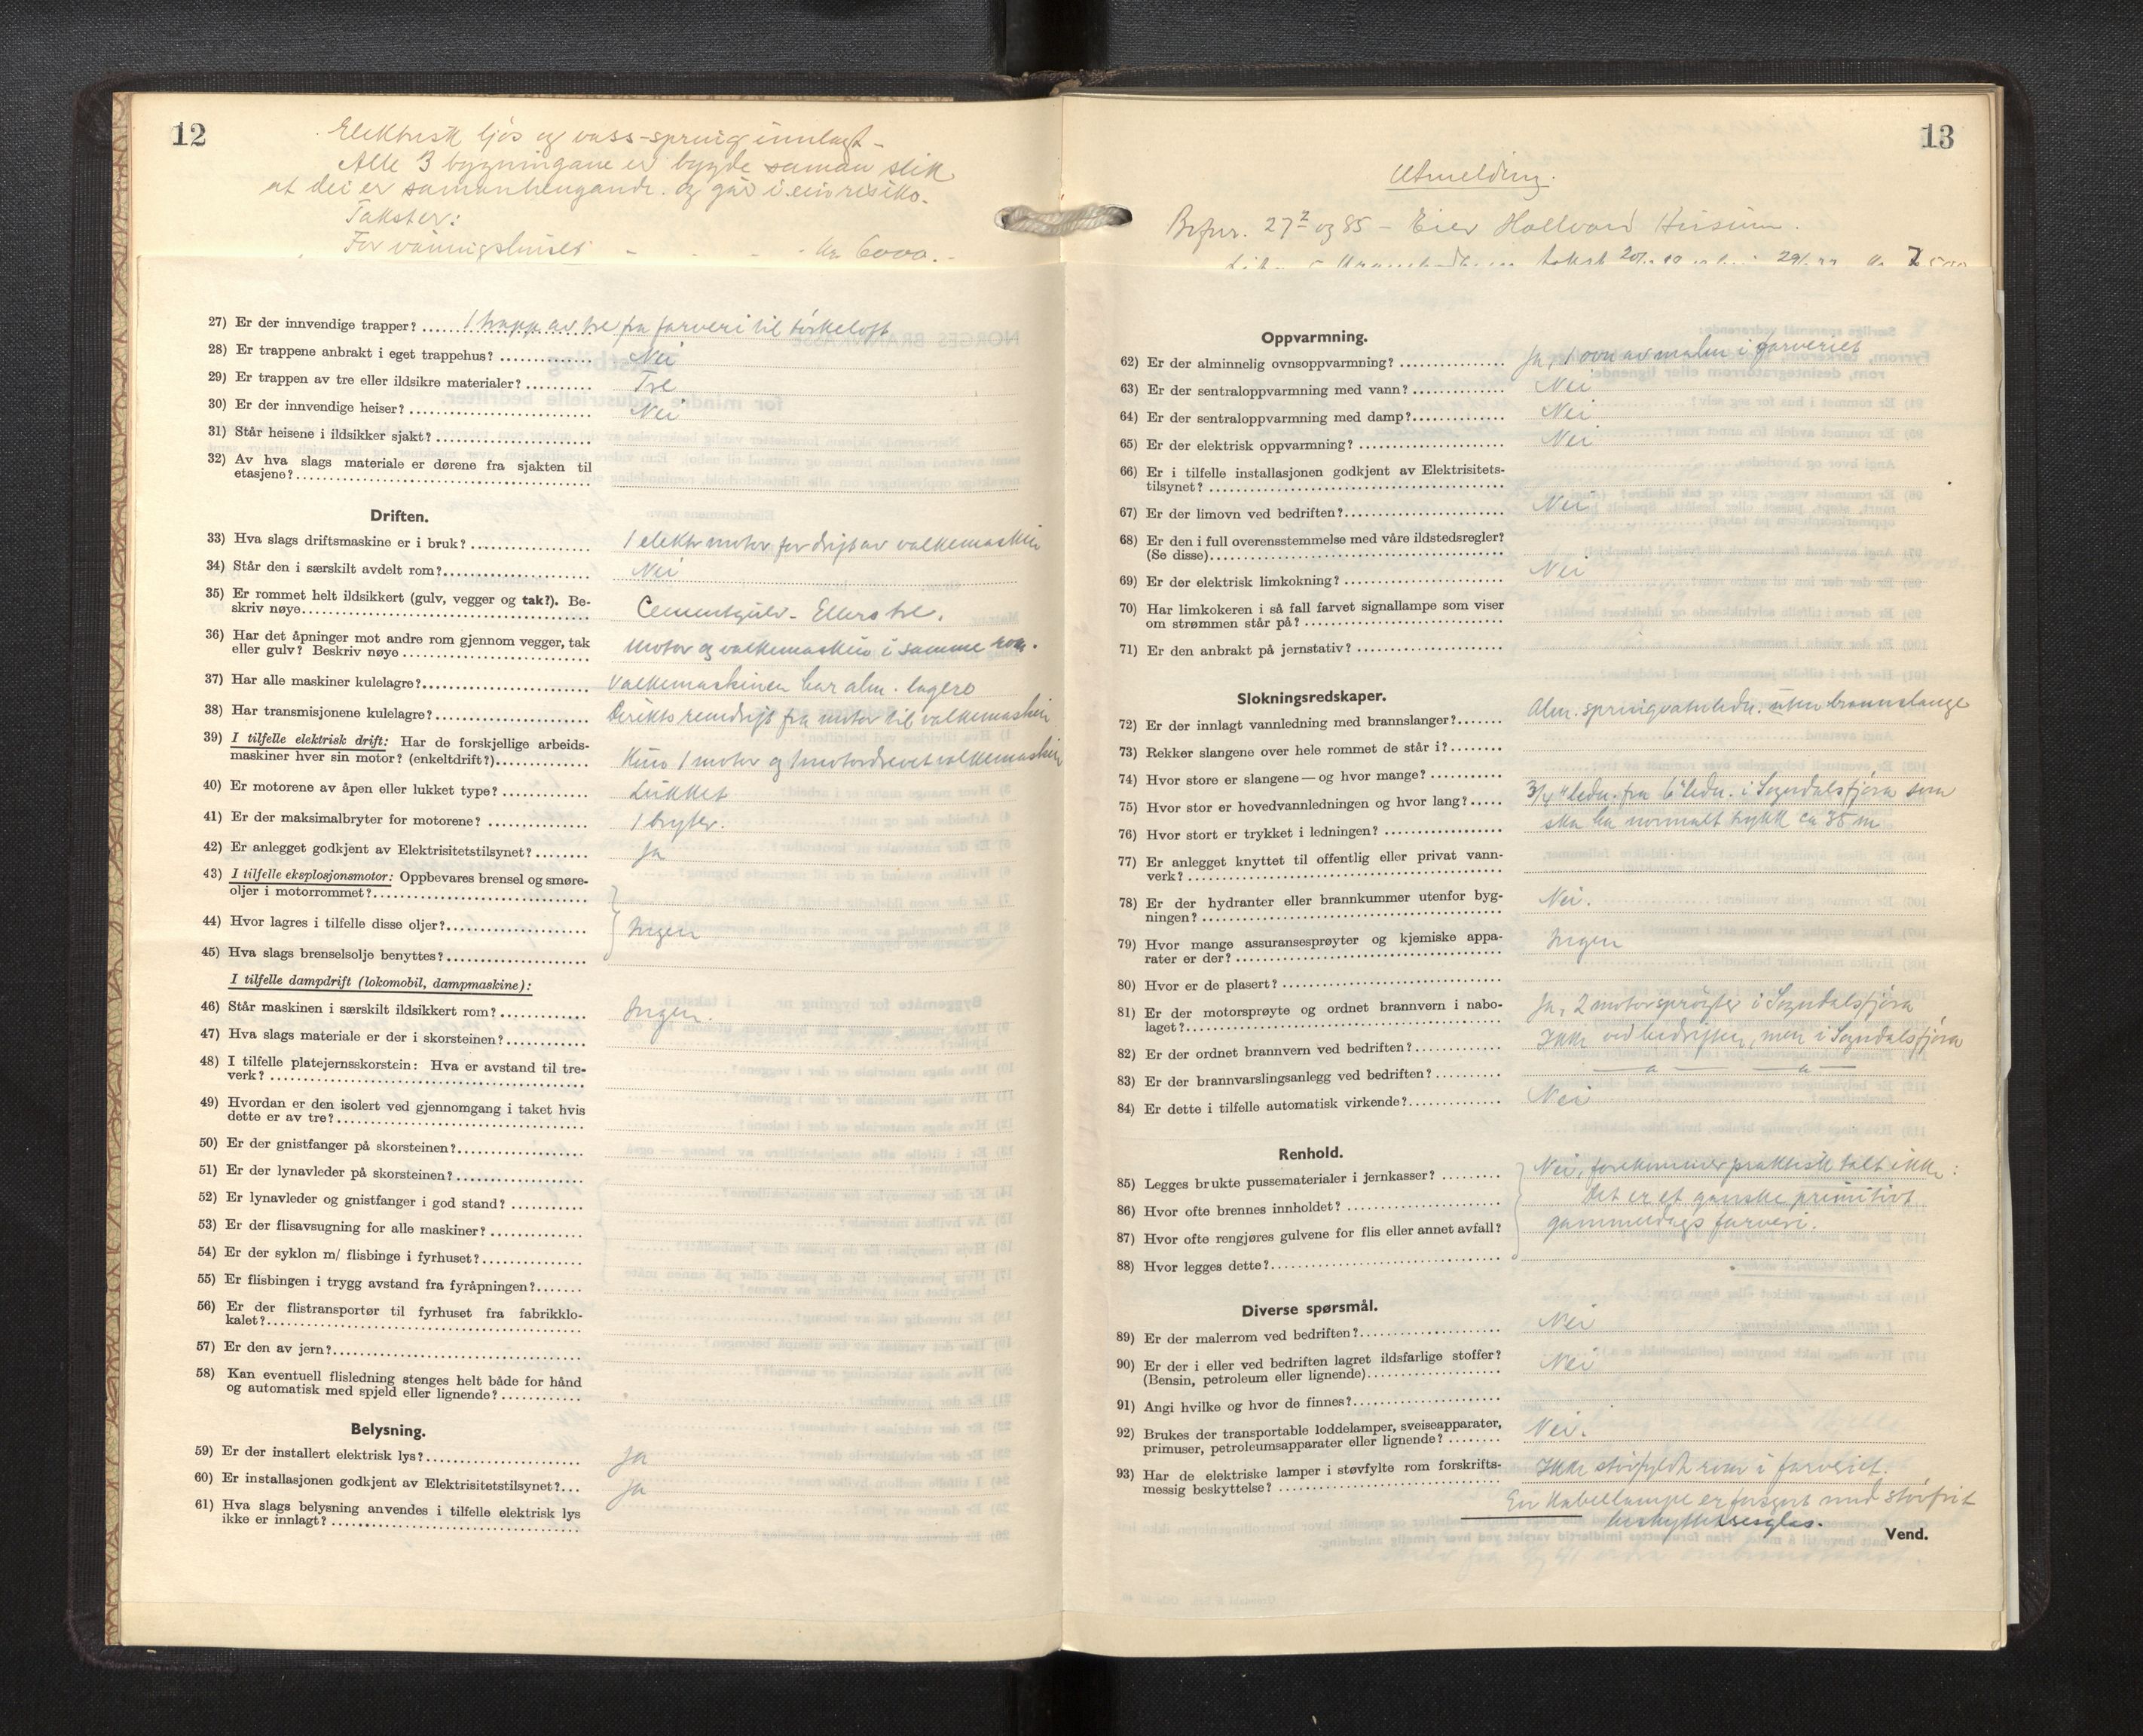 12
Elektrisk ljos og vass-spring innlagt -
Alle 3 bygningane er bygde saman slik
at dei er samanhengande. og går i ein risiko.
Takster:
For våningshuset - - - kr 6000.-
27) Er der innvendige trapper? 1 trapp av tre fra farveri til tørkeloft
28) Er trappene anbrakt i eget trappehus? Nei
29) Er trappen av tre eller ildsikre materialer? Tre
30) Er der innvendige heiser? Nei
31) Står heisene i ildsikker sjakt?
32) Av hva slags materiale er dørene fra sjakten til
etasjene?
Driften.
33) Hva slags driftsmaskine er i bruk? 1 elektr motor for drift av valkemaskin
34) Står den i særskilt avdelt rom? Nei
35) Er rommet helt ildsikkert (gulv, vegger og tak?). Be-
skriv nøye Cementgulv - Ellers tre.
36) Har det åpninger mot andre rom gjennom vegger, tak
eller gulv? Beskriv nøye Motor og valkemaskin i samme rom.
37) Har alle maskiner kulelagre? Valkemaskinen har alm. lagere
38) Har transmisjonene kulelagre? Direkte remdrift fra motor til valkemaskin
39) I tilfelle elektrisk drift: Har de forskjellige arbeids-
maskiner hver sin motor? (enkeltdrift?) Kun 1 motor og 1 motordrevet valkemaskin
40) Er motorene av åpen eller lukket type? Lukket
41) Er der maksimalbryter for motorene? 1 bryter.
42) Er anlegget godkjent av Elektrisitetstilsynet? Ja
43) I tilfelle eksplosjonsmotor: Oppbevares brensel og smøre-
oljer i motorrommet?
44) Hvor lagres i tilfelle disse oljer? Ingen
45) Hva slags brenselsolje benyttes?
I tilfelle dampdrift (lokomobil, dampmaskine):
46) Står maskinen i særskilt ildsikkert rom? Ingen.
47) Hva slags materiale er der i skorsteinen?
48) I tilfelle platejernsskorstein: Hva er avstand til tre-
verk?
49) Hvordan er den isolert ved gjennomgang i taket hvis
dette er av tre?
50) Er der gnistfanger på skorsteinen?
51) Er der lynavleder på skorsteinen?
52) Er lynavleder og gnistfanger i god stand?
53) Er der flisavsugning for alle maskiner?
54) Er der syklon m/ flisbinge i fyrhuset?
55) Er flisbingen i trygg avstand fra fyråpningen?
56) Er der flistransportør til fyrhuset fra fabrikklo-
kalet?
57) Er den av jern?
58) Kan eventuell flisledning stenges helt både for hånd
og automatisk med spjeld eller lignende?
Belysning.
59) Er der installert elektrisk lys? Ja
60) Er installasjonen godkjent av Elektrisitetstilsynet? Ja
61) Hva slags belysning anvendes i tilfelle elektrisk lys
ikke er innlagt?
13
Utmelding.
27² og 85 - Eier Hallvard Husum.
Oppvarmning.
62) Er der alminnelig ovnsoppvarmning? Ja, 1 ovn av malm i farveriet
63) Er der sentraloppvarmning med vann? Nei
64) Er der sentraloppvarmning med damp? Nei
65) Er der elektrisk oppvarmning? Nei
66) Er i tilfelle installasjonen godkjent av Elektrisitets-
tilsynet?
67) Er der limovn ved bedriften? Nei
68) Er den i full overensstemmelse med våre ildstedsregler?
(Se disse)
69) Er der elektrisk limkokning? Nei
70) Har limkokeren i så fall farvet signallampe som viser
om strømmen står på?
71) Er den anbrakt på jernstativ?
Slokningsredskaper.
72) Er der innlagt vannledning med brannslanger? Alm. springvatnledn. uten brannslange
73) Rekker slangene over hele rommet de står i?
74) Hvor store er slangene — og hvor mange?
75) Hvor stor er hovedvannledningen og hvor lang? 3/4" ledn. fra 6" ledn. i Sogndalsfjøra som
76) Hvor stort er trykket i ledningen? ska ha normalt trykk ca 35 m
77) Er anlegget knyttet til offentlig eller privat vann-
verk?
78) Er der hydranter eller brannkummer utenfor byg-
ningen? Nei.
79) Hvor mange assuransesprøyter og kjemiske appa-
rater er der? Ingen
80) Hvor er de plasert?
81) Er der motorsprøyte og ordnet brannvern i nabo-
laget? Ja, 2 motorsprøyter i Sogndalsfjøra
82) Er der ordnet brannvern ved bedriften? Ikke ved bedriften, men i Sogndalsfjøra
83) Er der brannvarslingsanlegg ved bedriften? — " — — " —
84) Er dette i tilfelle automatisk virkende? Nei
Renhold.
85) Legges brukte pussematerialer i jernkasser? Nei, forekommer praktisk talt ikke:
86) Hvor ofte brennes innholdet? Det er et ganske primitivt
87) Hvor ofte rengjøres gulvene for flis eller annet avfall? gammeldags farveri.
88) Hvor legges dette?
Diverse spørsmål.
89) Er der malerrom ved bedriften? Nei
90) Er der i eller ved bedriften lagret ildsfarlige stoffer?
(Bensin, petroleum eller lignende) Nei
91) Angi hvilke og hvor de finnes?
92) Brukes der transportable loddelamper, sveiseapparater,
primuser, petroleumsapparater eller lignende? Nei.
93) Har de elektriske lamper i støvfylte rom forskrifts-
messig beskyttelse? Ikke støvfyldte rom i farveriet.
En kabellampe er forsynt med støvfrit
beskyttelsesglas.
Vend.